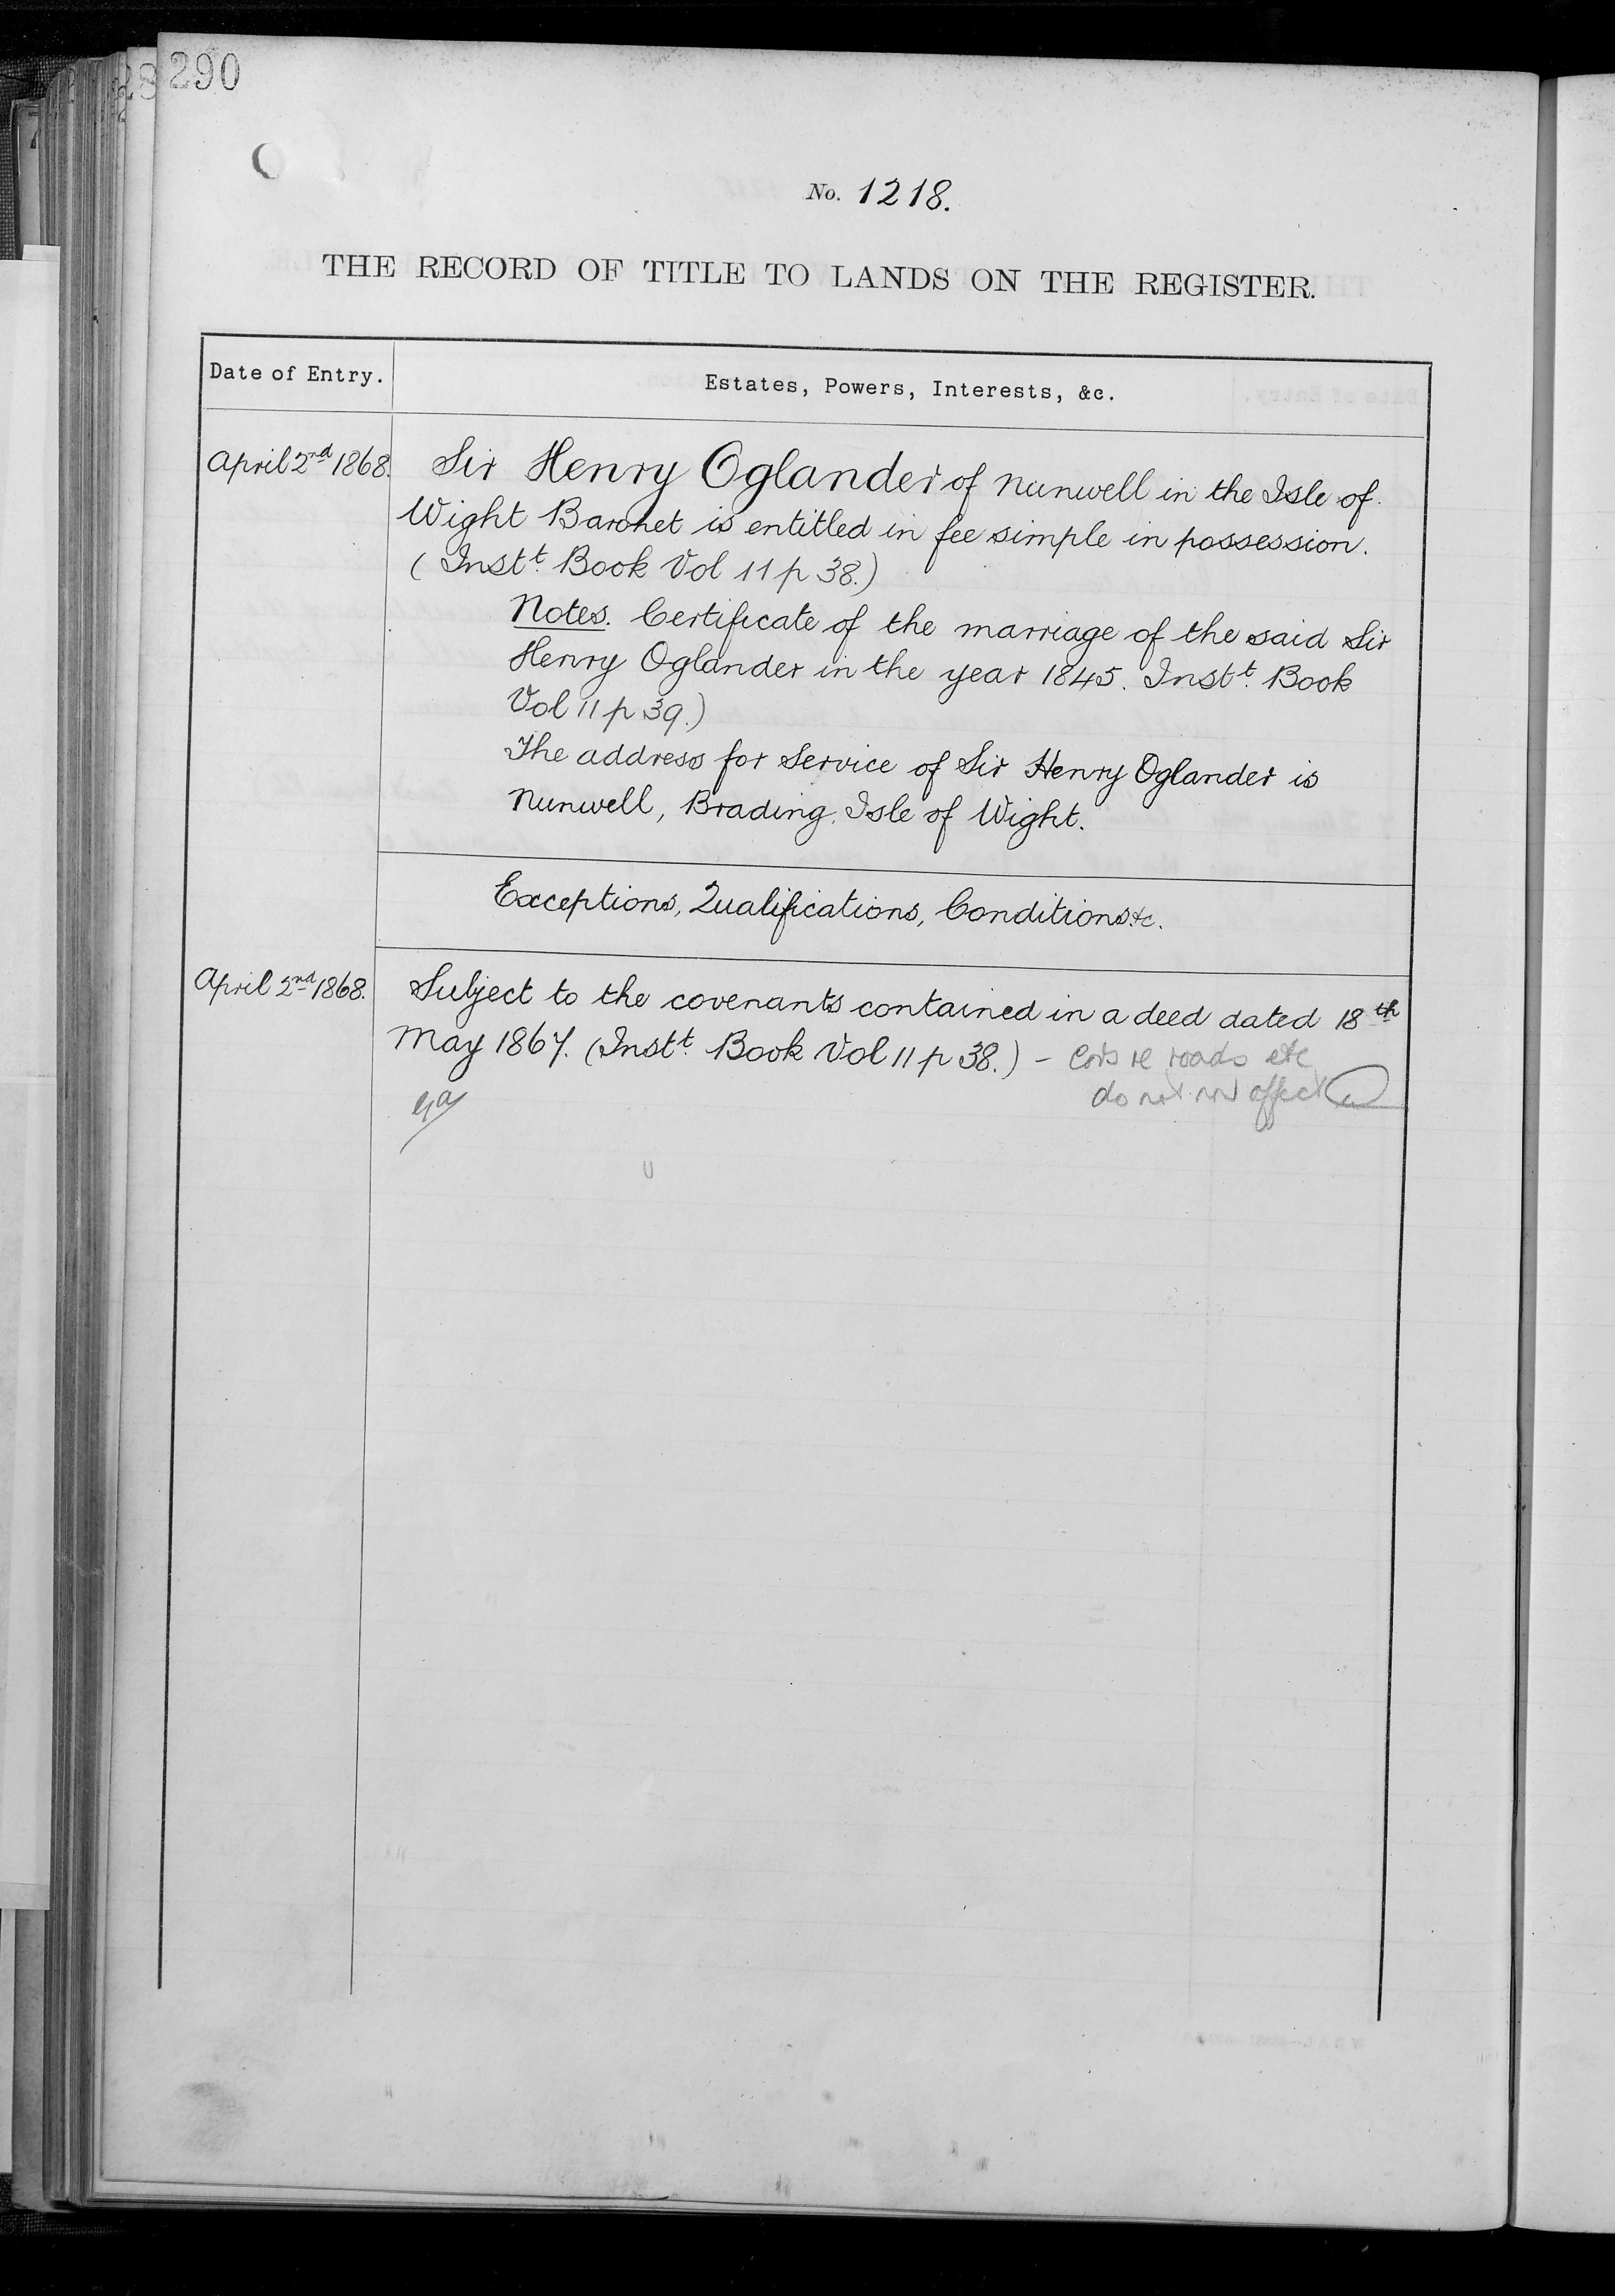 290
No. 1218.
THE RECORD OF TITLE TO LANDS ON THE REGISTER.
Date of Entry.
Estates, Powers, Interests, &c.
April 2nd 1868.
Sir Henry Oglander of Nunwell in the Isle of
Wight Baronet is entitled in fee simple in possession.
(Instt. Book Vol 11 p 38.)
Notes. Certificate of the marriage of the said Sir
Henry Oglander in the year 1845. Instt. Book
Vol 11 p 39.)
The address for Service of Sir Henry Oglander is
Nunwell, Brading, Isle of Wight.
Exceptions, Qualifications, Conditions &c.
April 2nd 1868.
Subject to the covenants contained in a deed dated 18th
May 1867. (Instt. Book Vol 11 p 38.) – Covs re roads etc
do not now affect